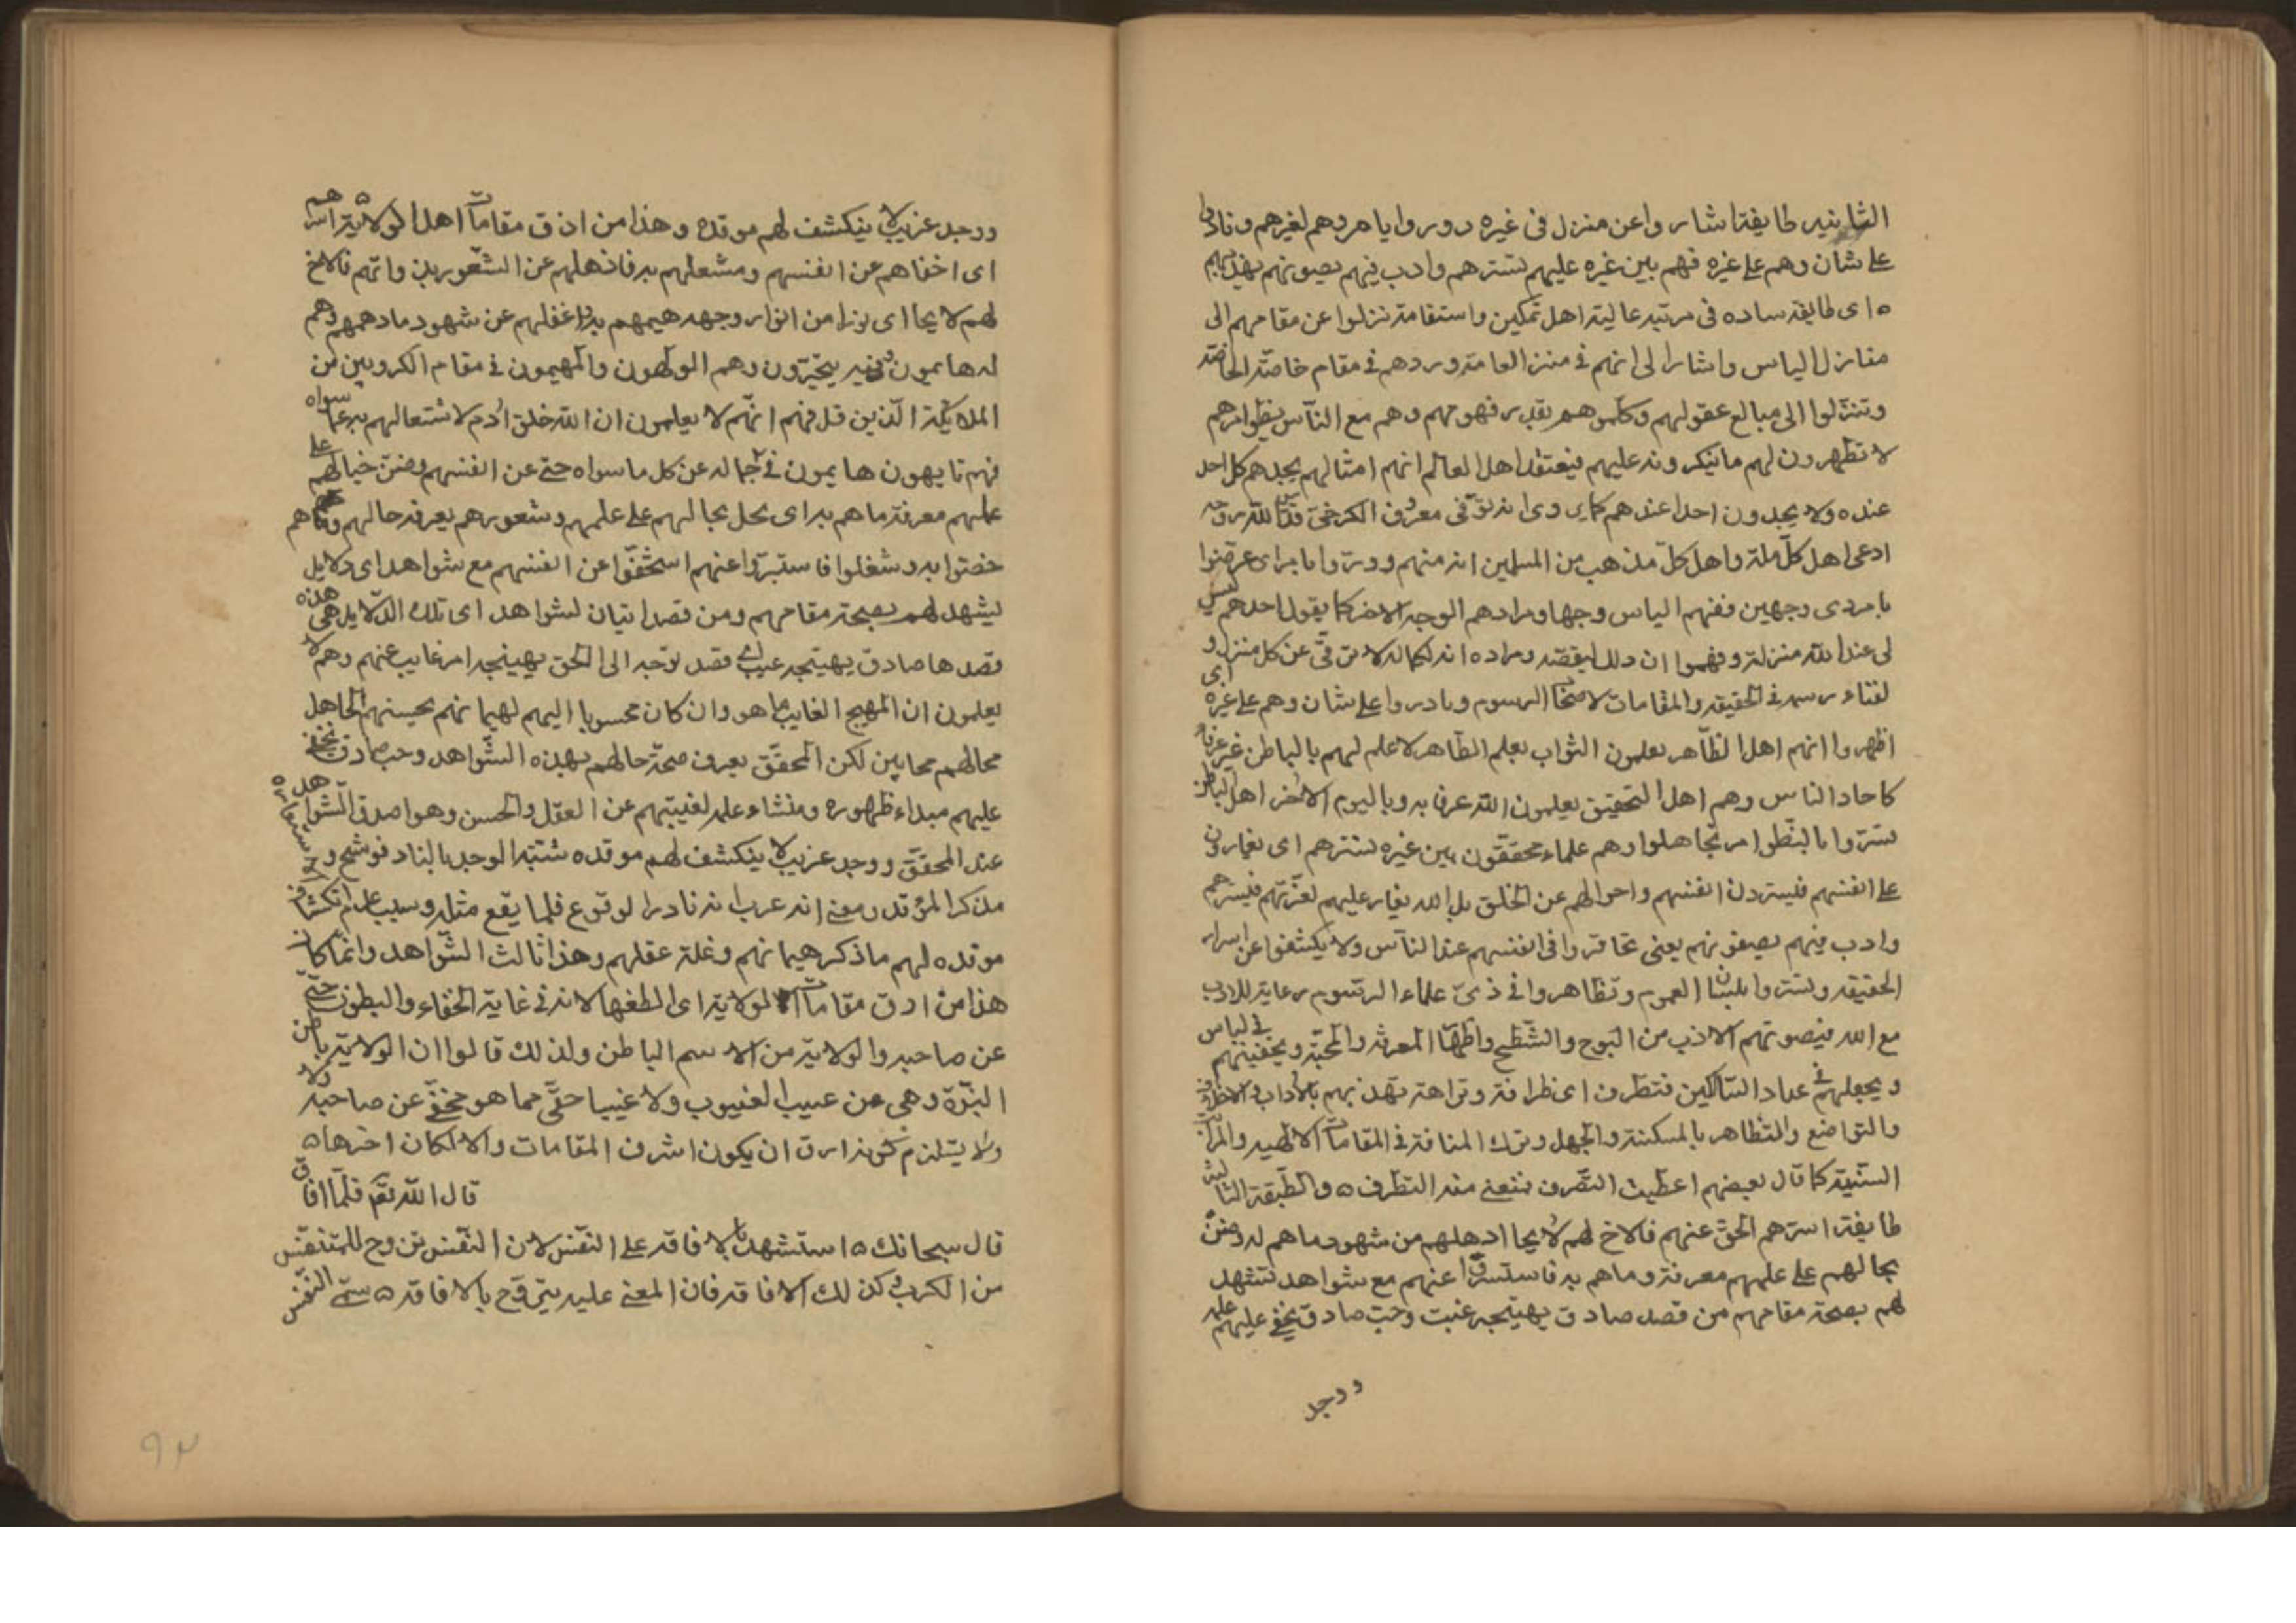 الثانيه طايفة اشاروا عن منزل فى غيره ورووا بامر وهم لغيرهم ونادوا
على شان وهم على غيره فهم بين غيره عليهم تسترهم وادب فيهم يصونهم
ه اى طايفه ساده فى مرتبه عالية اهل تمكين واستقامة نزلوا عن مقامهم الى
منازل الياس واشارا الى انهم فى منزل العامة وردهم فى مقام خاصّة الخاصّه
وتنزلوا الى مبالع عقولهم وكلموهم بقدر فهومهم وهم مع الناس بظواهرهم
لا تظهرون لهم ما ينكرونه عليهم فيعتقد اهل العالم انهم امثالهم يجدهم كل احد
عنده ولا يجدون احدا عندهم كما روى انه توّفى معروف الكرخىّ قدّس الله روحه
ادعى اهل كلّ ملة واهل كلّ مذهب من المسلمين انه منهم وورّوا بامر اى عرضوا
بامر ذى وجهين ففهم الياس وجها ومرادهم الوجه الاخر كما يقول احدهم ليس
لى عند الله منزلة وفهموا ان ذلك لنقصه ومراده انه لكماله لا ترقّى عن كل منزل و
لفناء رسمه فى الحقيقه والمقامات لاصحاب الرسوم ونادروا على شان وهم على غيره اى
اظهروا انهم اهل الظّاهر يعلمون الثواب بعلم الظاهر لا علم لهم بالباطن
كاحاد الناس وهم اهل التحقيق يعلمون الله عرفا به وباليوم الاخر اهل الباطن
تستّروا بالظواهر تجاهلوا وهم علماء محققون بين غيره تسترهم اى يغارون
على انفسهم فيسترون انفسهم واحوالهم عن الخلق بل الله يغار عليهم لعزّتهم فيسترهم
وادب فيهم يصونهم يعنى تحاقروا فى انفسهم عند الناس ولا يكشفوا عن اسرار
الحقيقه وتستروا بلباس العموم وتظاهروا فى ذىّ علماء الرسوم رعاية للادب
مع الله فيصونهم الادب من البوح والشطح واظهار المعرفة والمحبّة ويخفيهم فى لباس
ويجعلهم فى عداد السّالكين فتظرف اى ظرافة ونزاهة يهذبهم بالاداب
والتواضع والتظاهر بالمسكنة والجهل وترك المنافة فى المقامات الالهيه
السنيّة كما قال بعضهم اعطيت التصرف فتعنى منه التظرف ه والطّبقة الثالثة
طايفة اسرّهم الحقّ عنهم فالاخ لهم لايحا اذهلهم من شهود ما هم له وضنّ
بحالهم على علمهم معرفة وما هم به فاستسرّوا عنهم مع شواهد تشهد
لهم بصحة مقامهم من قصد صادق يهيّجه غيب وحبّ صادق يخفى عليهم علمه
ووجد
ووجد غريب لا ينكشف لهم موقده وهذا من ادق مقامات اهل الولايةه اسرّهم
اى اخفاهم عن انفسهم ومشغلهم به فاذهلهم عن الشعور بذواتهم فالاخ
لهم لايحا اى نورا من انوار وجهه هيمهم به واغفلهم عن شهود ما دهمهم وهم
له هايمون وفيه يتحيّرون وهم الوالهون والمهيمون فى مقام الكروبيين من
الملائكة الّذين قيل فيهم انّهم لا يعلمون ان الله خلق آدم لاشتغالهم به عما سواه
فهم تايهون هايمون فى جماله عن كل ما سواه حتى عن انفسهم وضنّ بحالهم على
علمهم معرفة ما هم به اى بخل بحالهم على علمهم وشعورهم بمعرفة حالهم وما هم
خصّوا به وشغلوا فاستبرّوا عنهم استخفّوا عن انفسهم مع شواهد اى دلايل
ليشهد لهم بصحة مقامهم ومن قصد ابتيان لشواهد اى تلك الدّلايل هى هذه
قصدها صادق يهيّجه غيب اى قصد توجّه الى الحق يهيّجه امر غايب عنهم وهم لا
يعلمون ان المهيج الغايب ما هو وان كان محسوبا اليهم لهيمانهم يحسبهم الجاهل
بحالهم مجانين لكن المحقّق يعرف صحّة حالهم بهذه الشّواهد وحبّ صادق يخفى
عليهم مبداء ظهوره ومنشاء علمه لغيبتهم عن العقل والحسن وهو اصدق الشّواهد
عند المحقّق ووجد غريب لا ينكشف لهم موقده شبّه الوجد بالنار فوشح
بذكر الموقد ومعنى انه غريب انه نادر الوقوع قلما يقع مثله وسبب عدم انكشاف
موقده لهم ما ذكر هيمانهم وغلة عقلهم وهذا ثالث الشّواهد وانّما كان
هذا من ادق مقامات الولاية اى الطفها لانه فى غاية الخفاء والبطون حتى
عن صاحبه والولاية من الاسم الباطن ولذلك قالوا ان الولاية باطن
النبوّة وهى من غيب الغيوب ولا غيبا حقّى مما هو مخفىّ عن صاحبه ولا
ولا يستلزم كونه ارق ان يكون اشرف المقامات والا لكان اخرها ه
قال الله تعَ فلمّا افاق
قال سبحانك ه استشهد بالافاقه على النفس لان النفس تروح للمتنفس
من الكرب وكذلك الافاقه فان المعنى عليه يتروّح بالافاقه ه سمّى النفس
٩٣